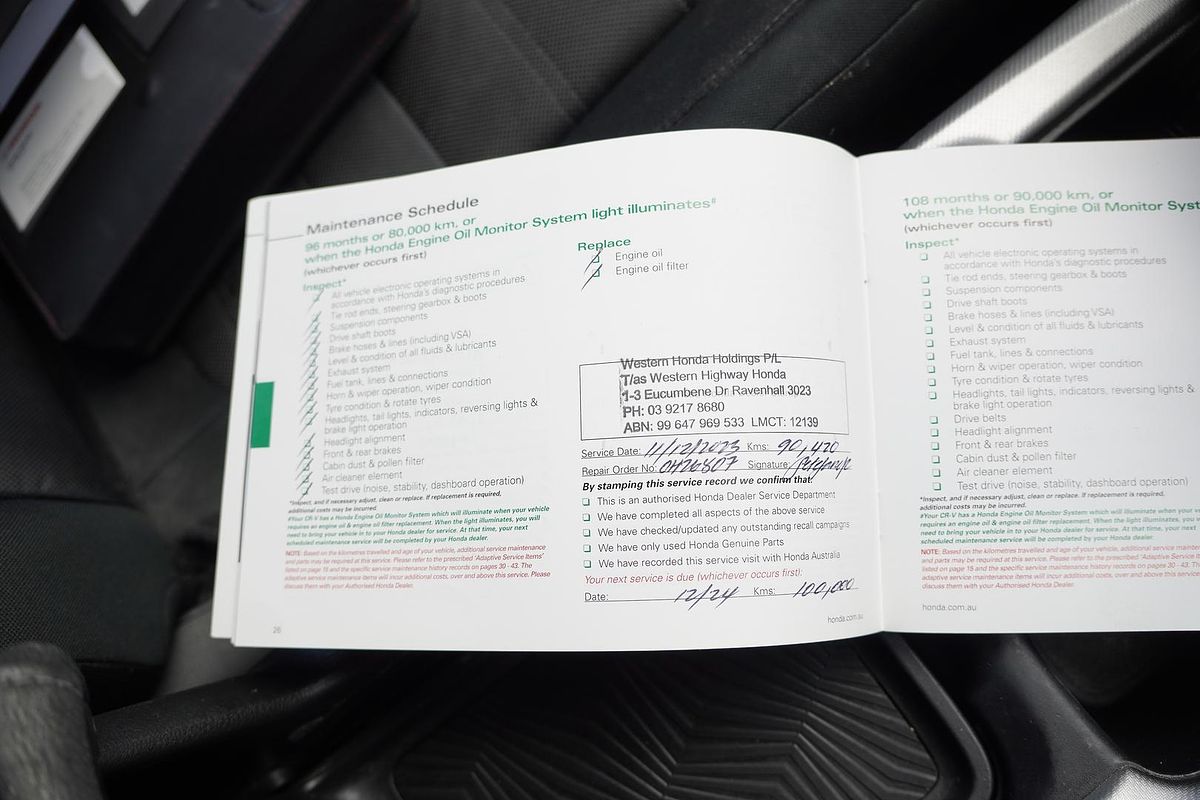 Maintenance Schedule
96 months or 80,000 km, or
when the Honda Engine Oil Monitor System light illuminates#
(whichever occurs first)
Inspect*
All vehicle electronic operating systems in
accordance with Honda's diagnostic procedures
Tie rod ends, steering gearbox & boots
Suspension components
Drive shaft boots
Brake hoses & lines (including VSA)
Level & condition of all fluids & lubricants
Exhaust system
Fuel tank, lines & connections
Horn & wiper operation, wiper condition
Tyre condition & rotate tyres
Headlights, tail lights, indicators, reversing lights &
brake light operation
Headlight alignment
Front & rear brakes
Cabin dust & pollen filter
Air cleaner element
Test drive (noise, stability, dashboard operation)
*Inspect, and if necessary adjust, clean or replace. If replacement is required,
additional costs may be incurred.
#Your CR-V has a Honda Engine Oil Monitor System which will illuminate when your vehicle
requires an engine oil & engine oil filter replacement. When the light illuminates, you will
need to bring your vehicle in to your Honda dealer for service. At that time, your next
scheduled maintenance service will be completed by your Honda dealer.
NOTE: Based on the kilometres travelled and age of your vehicle, additional service maintenance
and parts may be required at this service. Please refer to the prescribed 'Adaptive Service Items'
listed on page 15 and the specific service maintenance history records on pages 30 - 43. The
adaptive service maintenance items will incur additional costs, over and above this service. Please
discuss them with your Authorised Honda Dealer.
26
Replace
Engine oil
Engine oil filter
Western Honda Holdings P/L
T/as Western Highway Honda
1-3 Eucumbene Dr Ravenhall 3023
PH: 03 9217 8680
ABN: 99 647 969 533 LMCT: 12139
Service Date: 11/12/2023 Kms: 90,420
Repair Order No: Signature:
By stamping this service record we confirm that:
This is an authorised Honda Dealer Service Department
We have completed all aspects of the above service
We have checked/updated any outstanding recall campaigns
We have only used Honda Genuine Parts
We have recorded this service visit with Honda Australia
Your next service is due (whichever occurs first):
Date: 12/24 Kms: 100,000
honda.com.au
108 months or 90,000 km, or
when the Honda Engine Oil Monitor Syst
(whichever occurs first)
Inspect*
All vehicle electronic operating systems in
accordance with Honda's diagnostic procedures
Tie rod ends, steering gearbox & boots
Suspension components
Drive shaft boots
Brake hoses & lines (including VSA)
Level & condition of all fluids & lubricants
Exhaust system
Fuel tank, lines & connections
Horn & wiper operation, wiper condition
Tyre condition & rotate tyres
Headlights, tail lights, indicators, reversing lights &
brake light operation
Drive belts
Headlight alignment
Front & rear brakes
Cabin dust & pollen filter
Air cleaner element
Test drive (noise, stability, dashboard operation)
*Inspect, and if necessary adjust, clean or replace. If replacement is required,
additional costs may be incurred.
#Your CR-V has a Honda Engine Oil Monitor System which will illuminate when your v
requires an engine oil & engine oil filter replacement. When the light illuminates, you
need to bring your vehicle in to your Honda dealer for service. At that time, your next
scheduled maintenance service will be completed by your Honda dealer.
NOTE: Based on the kilometres travelled and age of your vehicle, additional service mainten
and parts may be required at this service. Please refer to the prescribed 'Adaptive Service It
listed on page 15 and the specific service maintenance history records on pages 30 - 43. The
adaptive service maintenance items will incur additional costs, over and above this service
discuss them with your Authorised Honda Dealer.
honda.com.au